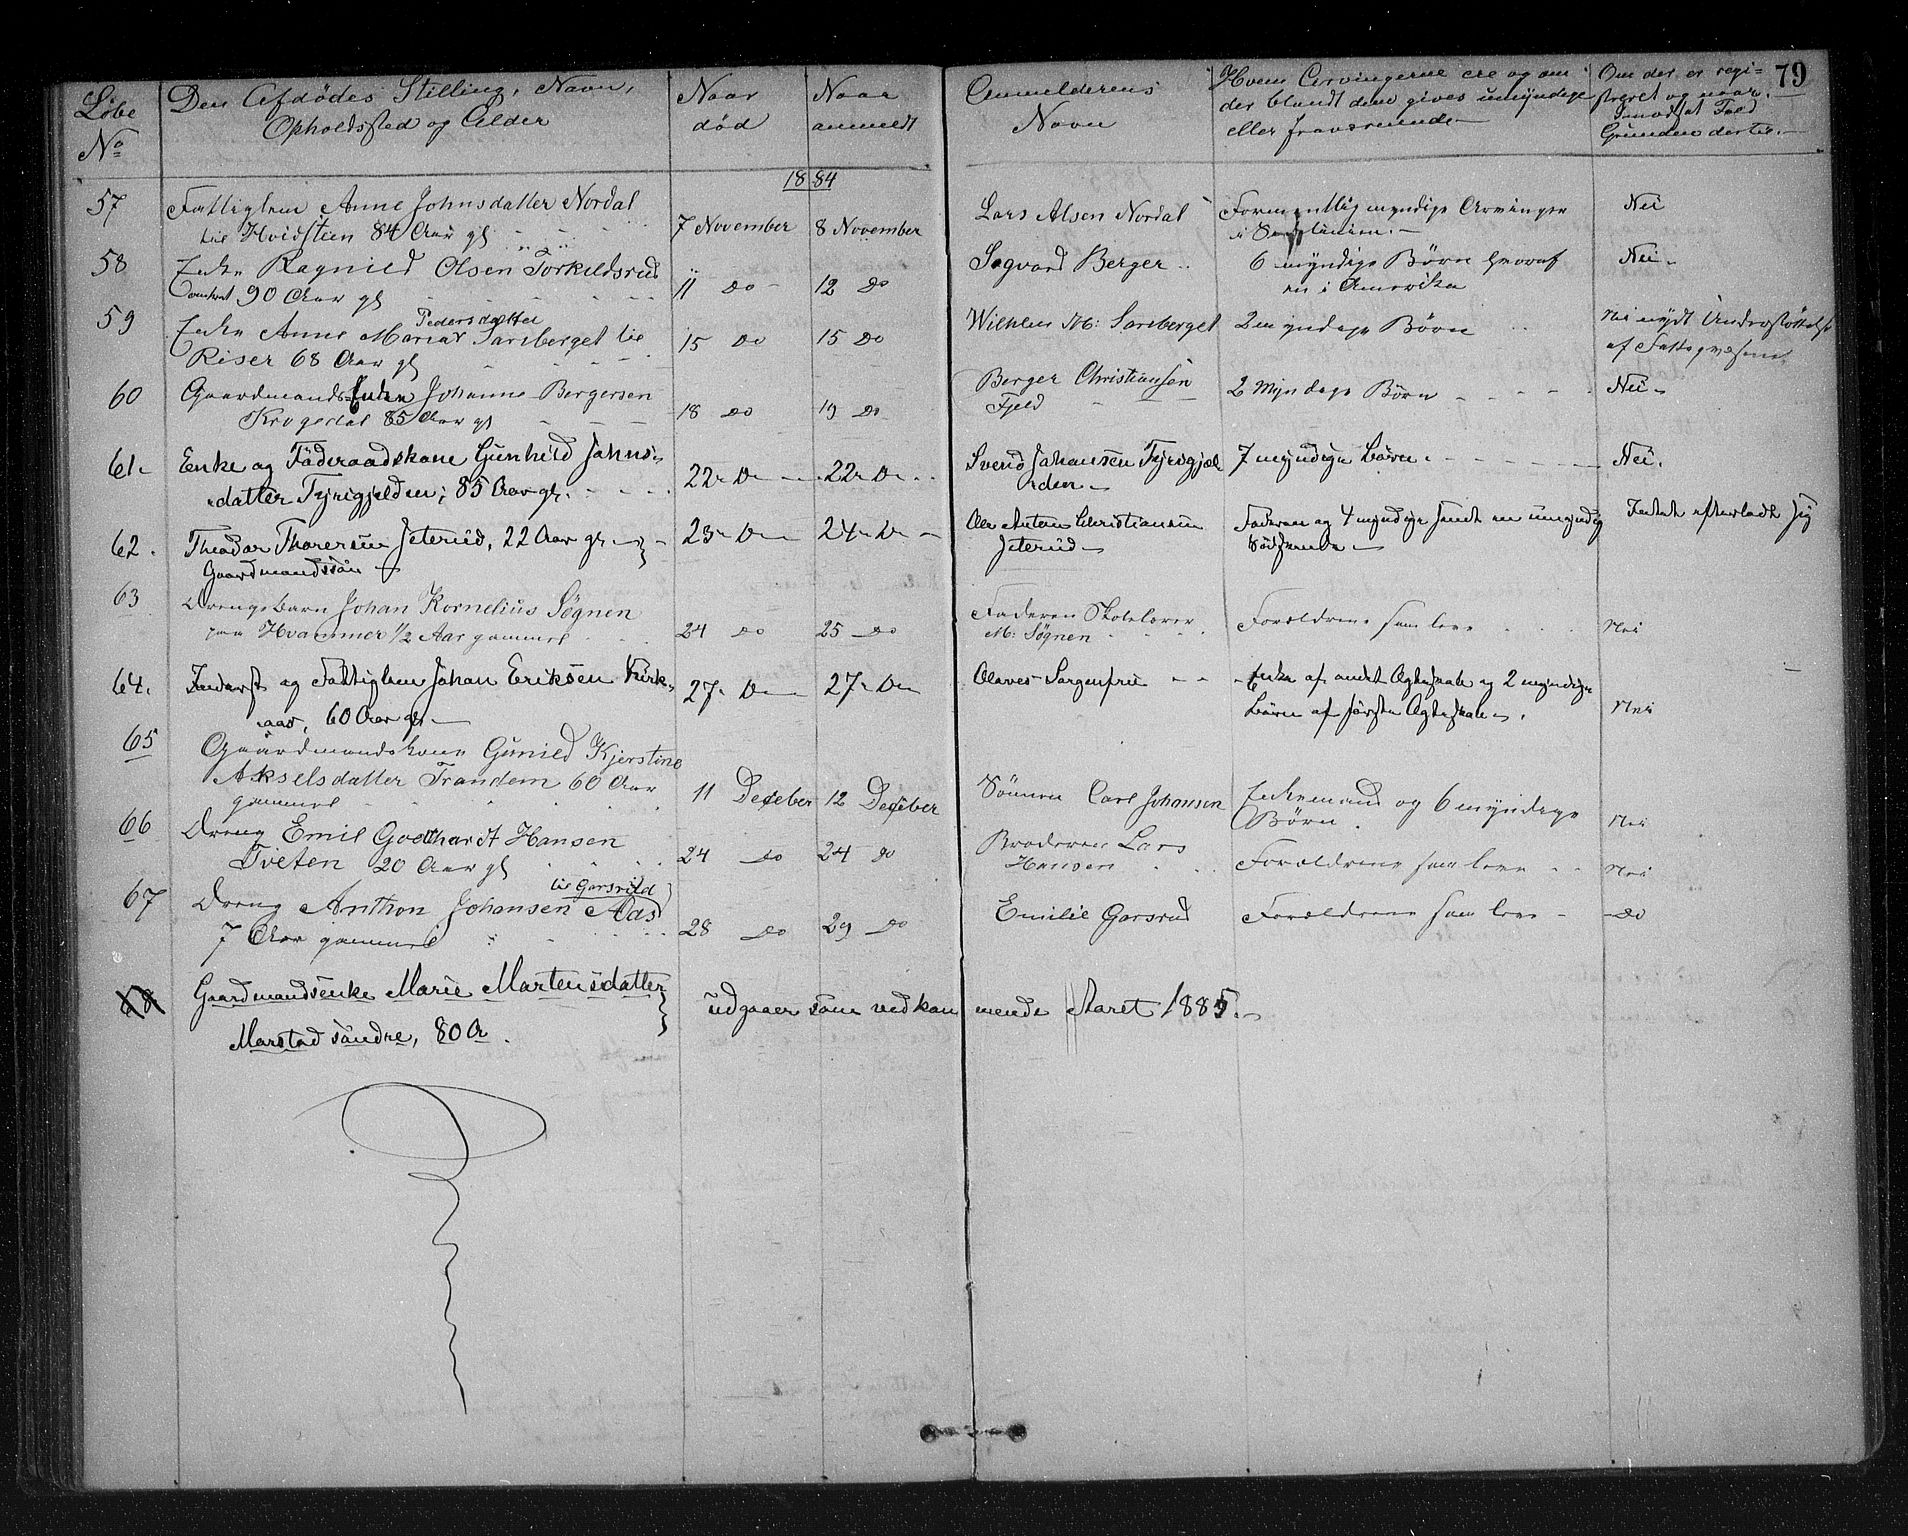 79
Løbe No
Den Afdødes Stilling, Navn,
Opholdssted og Alder
Naar død
Naar anmeldt
Anmelderens Navn
Hvem Arvingerne ere og om
der blandt dem gives umyndige
eller fraværende
Om der er regi-
streret og naar,
Imodsat Fald
Grunden dertil.
1884
57 Fattiglem Anne Johnsdatter Nordal
til Hvidsteen 84 Aar gl
7 November 8 November
Lars Alsen Nordal
Formentlig myndige Arvinger
Nei
58 Enke Ragnild Olsen Torkeldsrud
omtrent 90 Aar gl
11 do 12 do
Sigvard Berger
6 myndige Børn hvoraf
en i Amerika
Nei
59 Pedersdatter
Enke Anne Maria Sarsberget til
Riser 68 Aar gl
15 do 15 do
Wilhelm M: Sarsberget
2 myndige Børn
Nei nydt Understøttelse
af Fattigvæsenet
60 Gaardmands Enke Johanne Bergersen
Krogedal 85 Aar gl
18 do 19 do
Berger Christiansen
Fjeld
2 Myndige Børn
Nei
61 Enke og Føderaadskone Gunhild Johns-
datter Tyrigjelden; 85 Aar gl.
22 do 22 do
Svend Johansen Tyrigjæl-
den
7 myndige Børn
Nei.
62. Theodor Thoresen Jeterud, 22 Aar gl.
Gaardmandssøn
23 do 24 do
Ole Anton Christiansen
Jeterud
Faderen og 4 myndige samt en umyndig
Sødskende
Intet efterladt sig
63 Drengebarn Johan Kornelius Søgnen
paa Hvammer 1/2 Aar gammel
24 do 25 do
Faderen Skolelærer
M: Søgnen
Forældrene som leve
Nei
64. Inderst og Fattiglem Johan Eriksen Kirk-
aas, 60 Aar gl.
27 do 27 do
Olaves Sorgenfri
Enke af andet Ægteskab og 2 myndige
Børn af første Ægteskab.
Nei
65 Gaardmandskone Gunild Kjerstine
Akselsdatter Trandem 60 Aar
gammel
11 Deceber 12 Deceber
Sønnen Carl Johansen
Enkemand og 6 myndige
Børn.
Nei
66 Dreng Emil Godthardt Hansen
Tveten 20 Aar gl
24 do 24 do
Broderen Lars
Hansen
Forældrene som leve
Nei
67 til Garsrud
Dreng Anthon Johansen Aas
7 Aar gammel
28 do 29 do
Emilie Garsrud
Forældrene som leve
do
68 Gaardmandsenke Marie Martensdatter
Marstad søndre, 80 A.
udgaaer som vedkommende Aaret 1885.